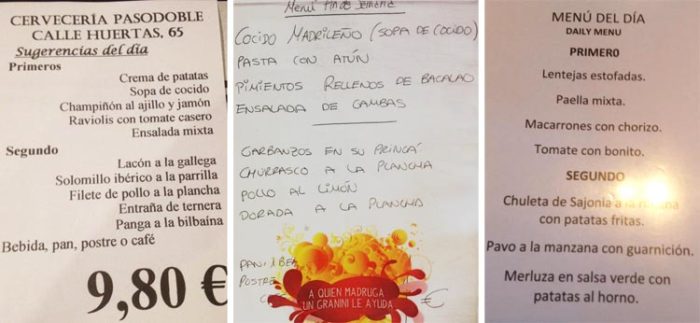 CERVECERÍA PASODOBLE
CALLE HUERTAS, 65
Sugerencias del día
Primeros
Crema de patatas
Sopa de cocido
Champiñón al ajillo y jamón
Raviolis con tomate casero
Ensalada mixta
Segundo
Lacón a la gallega
Solomillo ibérico a la parrilla
Filete de pollo a la plancha
Entraña de ternera
Panga a la bilbaína
Bebida, pan, postre o café
9,80 €
Menú fin de semana
COCIDO MADRILEÑO (SOPA DE COCIDO)
PASTA CON ATÚN
PIMIENTOS RELLENOS DE BACALAO
ENSALADA DE GAMBAS
GARBANZOS EN SU PRINGÁ
CHURRASCO A LA PLANCHA
POLLO AL LIMÓN
DORADA A LA PLANCHA
PAN
POSTRE
€
A QUIEN MADRUGA
UN GRANINI LE AYUDA
MENÚ DEL DÍA
DAILY MENU
PRIMERO
Lentejas estofadas.
Paella mixta.
Macarrones con chorizo.
Tomate con bonito.
SEGUNDO
Chuleta de Sajonia a la
con patatas fritas.
Pavo a la manzana con guarnición.
Merluza en salsa verde con
patatas al horno.